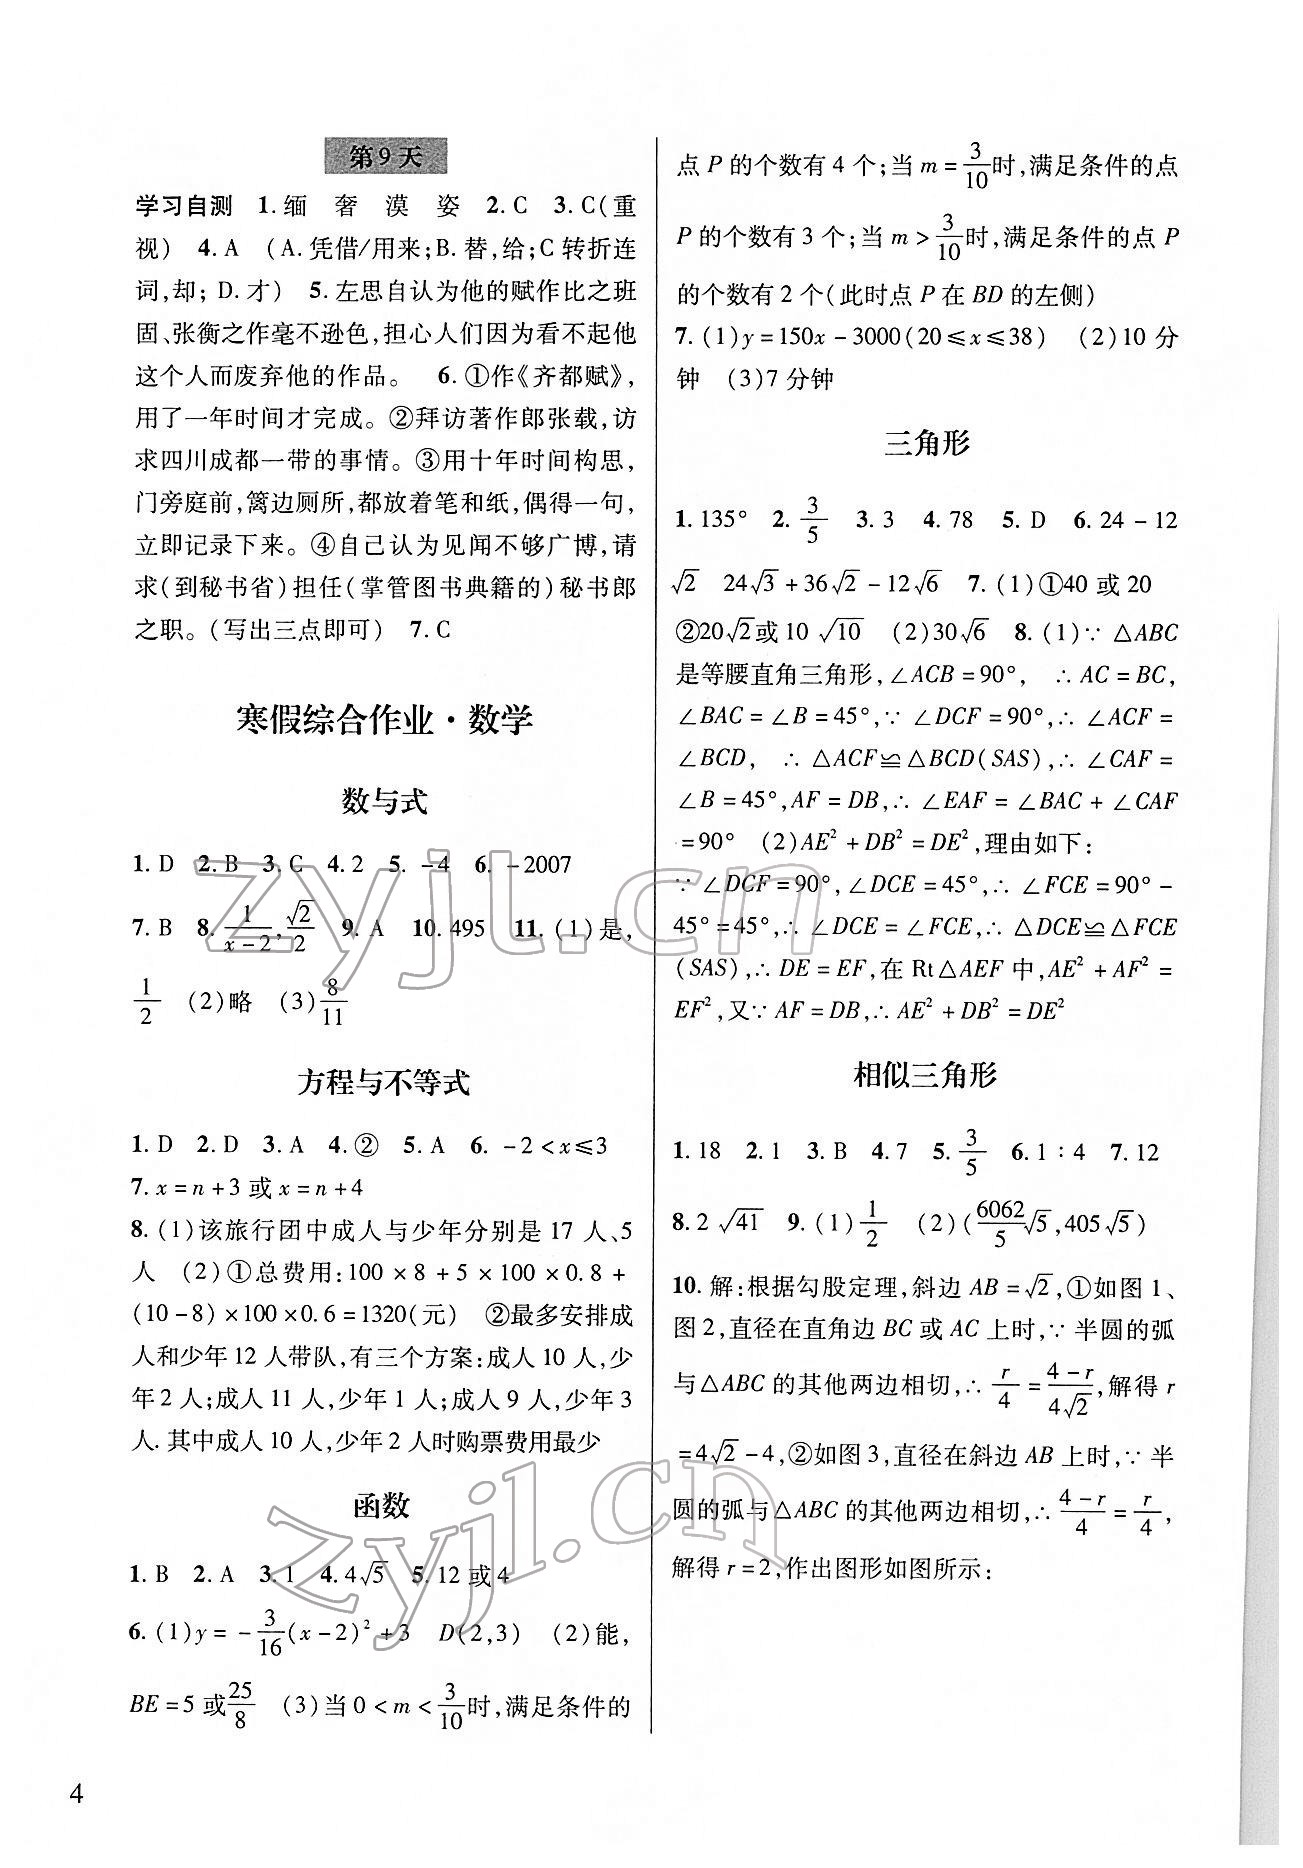 第9天
学习自测 1.缅 奢 漠 姿 2.C 3.C(重
视) 4.A (A.凭借/用来;B.替,给;C转折连
词,却; D.才) 5.左思自认为他的赋作比之班
固、张衡之作毫不逊色,担心人们因为看不起他
这个人而废弃他的作品。 6.①作《齐都赋》,
用了一年时间才完成。②拜访著作郎张载,访
求四川成都一带的事情。③用十年时间构思,
门旁庭前,篱边厕所,都放着笔和纸,偶得一句,
立即记录下来。④自己认为见闻不够广博,请
求(到秘书省)担任(掌管图书典籍的)秘书郎
之职。(写出三点即可) 7.C
寒假综合作业·数学
数与式
1.D 2.B 3.C 4.2 5.-4 6.-2007
7.B 8.1/(x-2),√2/2 9.A 10.495 11.(1)是,
1/2 (2)略 (3)8/11
方程与不等式
1.D 2.D 3.A 4.② 5.A 6.-2<x≤3
7.x=n+3或x=n+4
8.(1)该旅行团中成人与少年分别是17人、5
人 (2)①总费用:100×8+5×100×0.8+
(10-8)×100×0.6=1320(元) ②最多安排成
人和少年12人带队,有三个方案:成人10人,少
年2人;成人11人,少年1人;成人9人,少年3
人.其中成人10人,少年2人时购票费用最少
函数
1.B 2.A 3.1 4.4√5 5.12或4
6.(1)y=-3/16(x-2)²+3 D(2,3) (2)能,
BE=5或25/8 (3)当0<m<3/10时,满足条件的
点P的个数有4个;当m=3/10时,满足条件的点
P的个数有3个;当m>3/10时,满足条件的点P
的个数有2个(此时点P在BD的左侧)
7.(1)y=150x-3000(20≤x≤38) (2)10分
钟 (3)7分钟
三角形
1.135° 2.3/5 3.3 4.78 5.D 6.24-12
√2 24√3+36√2-12√6 7.(1)①40或20
②20√2或10√10 (2)30√6 8.(1)∵△ABC
是等腰直角三角形,∠ACB=90°, ∴AC=BC,
∠BAC=∠B=45°,∵∠DCF=90°,∴∠ACF=
∠BCD, ∴△ACF≌△BCD(SAS),∴∠CAF=
∠B=45°,AF=DB,∴∠EAF=∠BAC+∠CAF
=90° (2)AE²+DB²=DE²,理由如下:
∵∠DCF=90°,∠DCE=45°,∴∠FCE=90°-
45°=45°,∴∠DCE=∠FCE,∴△DCE≌△FCE
(SAS),∴DE=EF,在Rt△AEF中,AE²+AF²=
EF²,又∵AF=DB,∴AE²+DB²=DE²
相似三角形
1.18 2.1 3.B 4.7 5.3/5 6.1:4 7.12
8.2√41 9.(1)1/2 (2)(6062/5√5,405√5)
10.解:根据勾股定理,斜边AB=√2,①如图1、
图2,直径在直角边BC或AC上时,∵半圆的弧
与△ABC的其他两边相切,∴r/4=(4-r)/(4√2),解得r
=4√2-4,②如图3,直径在斜边AB上时,∵半
圆的弧与△ABC的其他两边相切,∴(4-r)/4=r/4,
解得r=2,作出图形如图所示:
4
zyjl.cn
zyjl.cn